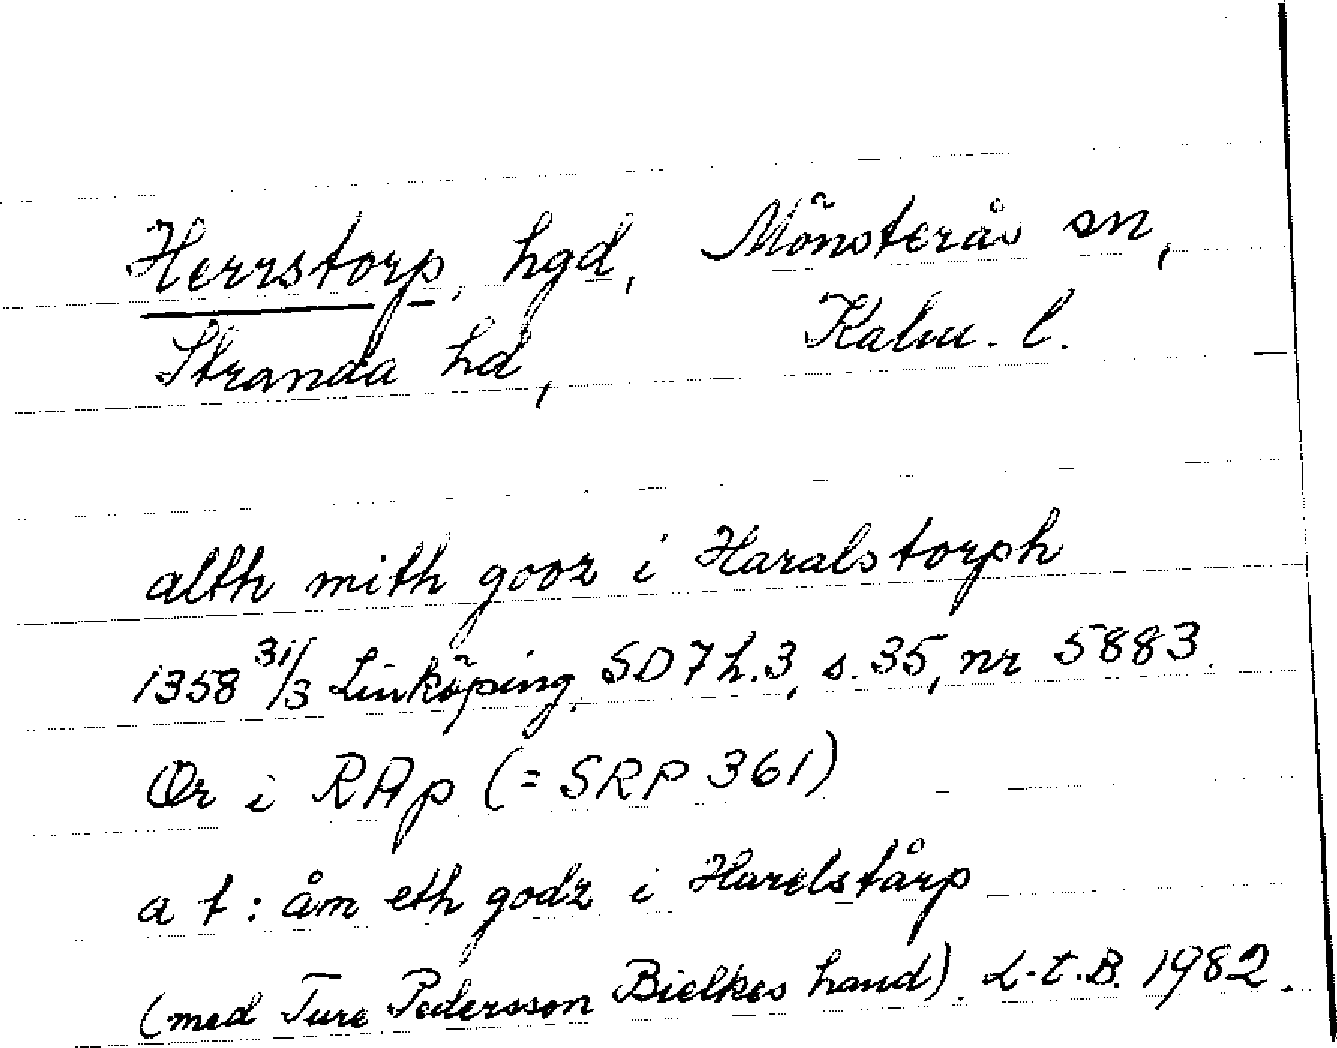 Herrstorp, hgd, Mönsterås sn,
Stranda hd, Kalm. l.
alth mith gooz i Haralstorph
1358 31/3 Linköping. SD 7 h. 3, s. 35, nr 5883.
Or i RAp (= SRP 361)
a t : åm eth godz i Harelstårp
(med Ture Pedersson Bielkes hand). L-t.B. 1982.